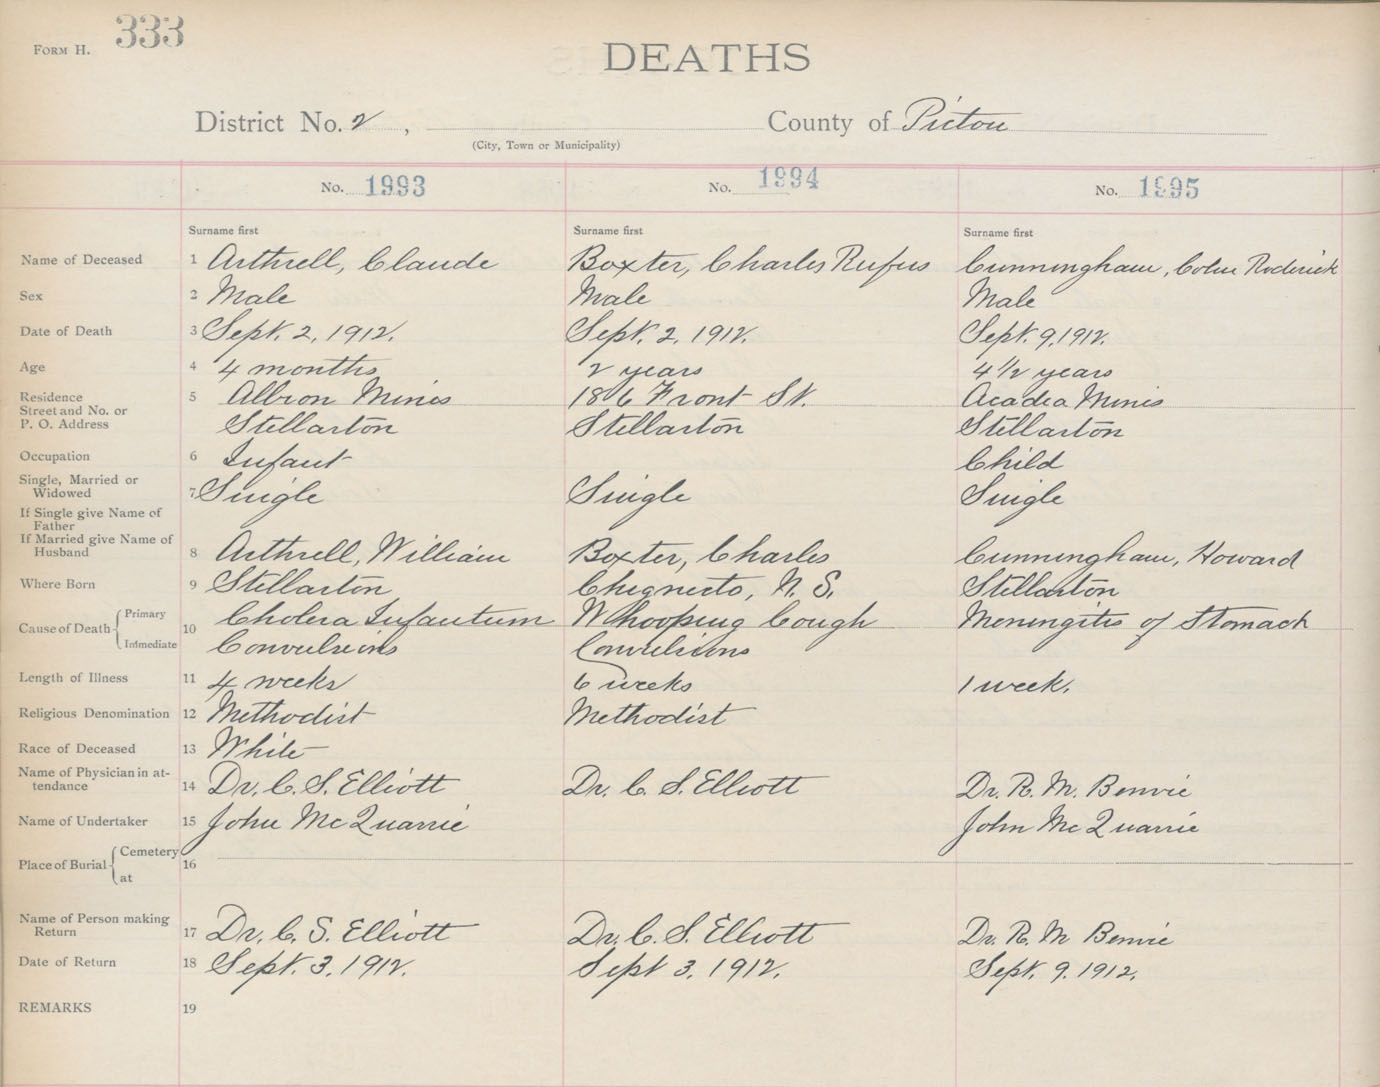 FORM H. 333
DEATHS
District No. 2 , County of Pictou
(City, Town or Municipality)
No. 1993 No. 1994 No. 1995
Surname first Surname first Surname first
Name of Deceased 1 Arthrell, Claude Boxter, Charles Rufus Cunningham, Colin Roderick
Sex 2 Male Male Male
Date of Death 3 Sept. 2, 1912. Sept. 2, 1912. Sept. 9, 1912.
Age 4 4 months 2 years 4 1/2 years
Residence 5 Albion Mines 186 Front St. Acadia Mines
Street and No. or
P. O. Address Stellarton Stellarton Stellarton
Occupation 6 Infant Child
Single, Married or
Widowed 7 Single Single Single
If Single give Name of
Father
If Married give Name of
Husband 8 Arthrell, William Boxter, Charles Cunningham, Howard
Where Born 9 Stellarton Chignecto, N. S. Stellarton
Cause of Death Primary 10 Cholera Infantum Whooping Cough Meningitis of Stomach
Immediate Convulsions Convulsions
Length of Illness 11 4 weeks 6 weeks 1 week.
Religious Denomination 12 Methodist Methodist
Race of Deceased 13 White
Name of Physician in at-
tendance 14 Dr. C. S. Elliott Dr. C. S. Elliott Dr. R. M. Benvie
Name of Undertaker 15 John McQuarrie John McQuarrie
Place of Burial Cemetery 16
at
Name of Person making
Return 17 Dr. C. S. Elliott Dr. C. S. Elliott Dr. R. M Benvie
Date of Return 18 Sept. 3. 1912. Sept 3. 1912. Sept. 9. 1912.
REMARKS 19